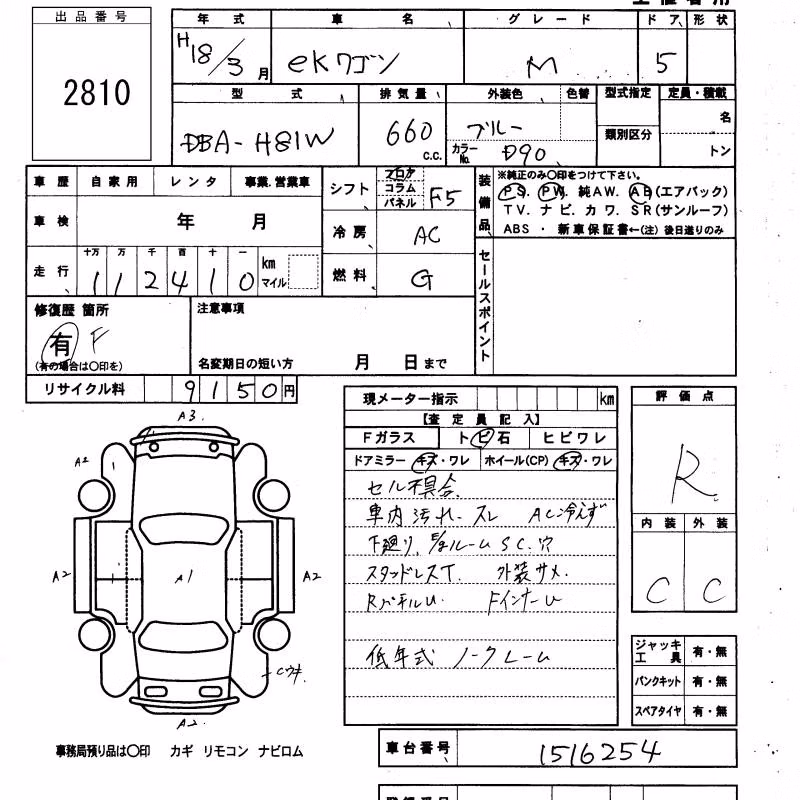 出品番号
2810
年式 車名 グレード ドア 形状
H18/3月 eKワゴン M 5
型式 排気量 外装色 色替 型式指定 定員・積載
DBA-H81W 660 c.c. ブルー 類別区分 名
カラーNo. D90 トン
車歴 自家用 レンタ 事業.営業車
シフト フロア コラム パネル F5
車検 年 月
冷房 AC
走行 十万 万 千 百 十 一
112410 km マイル
燃料 G
装備品 ※純正のみ〇印をつけて下さい。
PS. PW. 純AW. AB(エアバック)
TV. ナビ. カワ. SR(サンルーフ)
ABS ・ 新車保証書←(注) 後日送りのみ
セールスポイント
修復歴 箇所
有 F
(有の場合は〇印を)
注意事項
名変期日の短い方 月 日まで
リサイクル料 9150円
現メーター指示 km
【査定員記入】
Fガラス トビ石 ヒビワレ
ドアミラー キズ・ワレ ホイール(CP) キズ・ワレ
セル不具合
車内汚れ.スレ AC冷えず
下廻り. ルーム SC.穴
スタッドレスT. 外装サメ.
RパネルU FインナーU
低年式 ノークレーム
評価点
R
内装 外装
C C
ジャッキ工具 有・無
パンクキット 有・無
スペアタイヤ 有・無
A3.
A2
A2 A1 A2
A2
事務局預り品は〇印 カギ リモコン ナビロム
車台番号 1516254